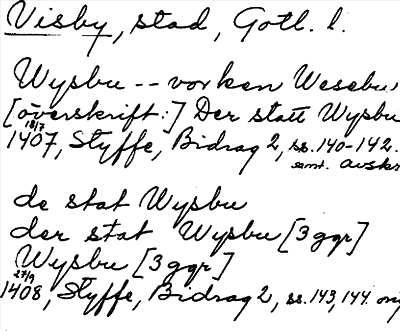 Visby, stad, Gotl. l.
Wysbu -- vor ken Wesebu,
[överskrift:] Der statt Wysbu
18/7
1407, Styffe, Bidrag 2, ss. 140-142.
samt. avskr
de stat Wysbu
der stat Wysbu [3 ggr]
Wysbu [3 ggr]
27/9
1408, Styffe, Bidrag 2, ss. 143, 144. orig